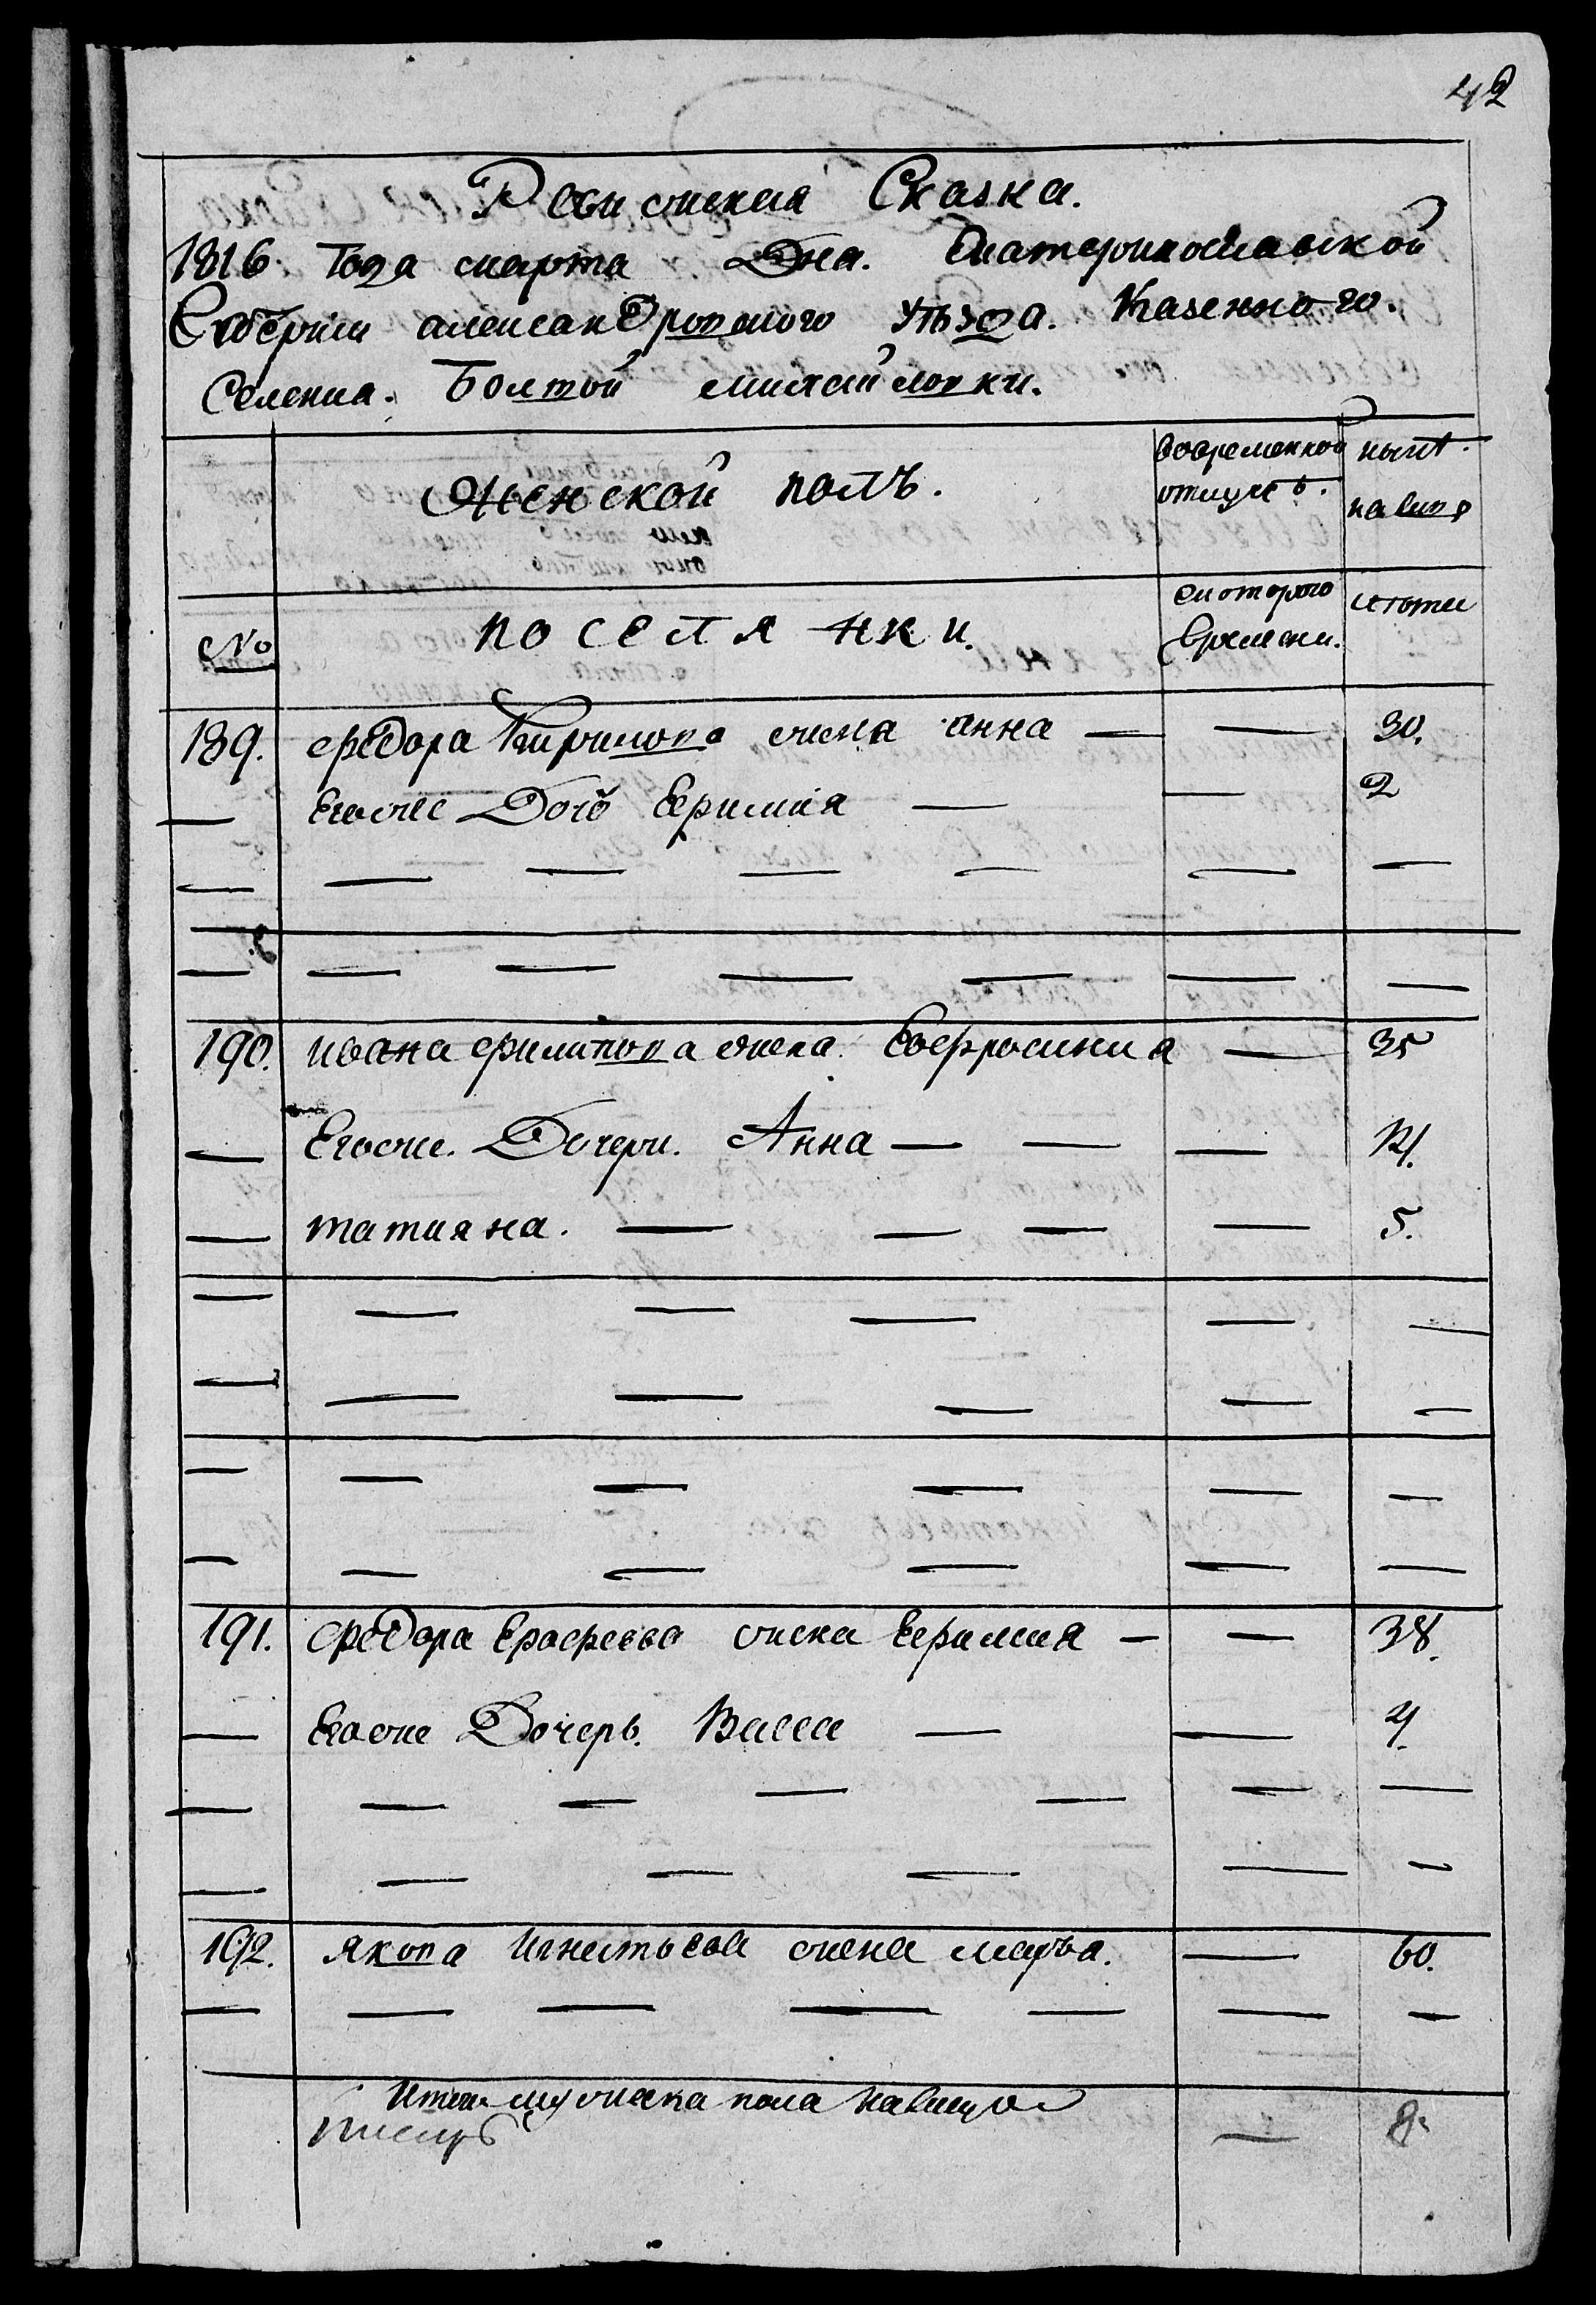 42
Ревижская Сказка.
1816 Года марта Дня. Екатеринославской
Губернии александровского уѣзда. Казенного.
Селения. Болшой михайловки.
Женской полъ.
вовременной отлучкѣ.
нынѣ. налицо
№
поселянки.
скоторого времени.
лѣты
189. федора Кирилова жена анна — — 30.
— Егоже Дочь Ефимия — — 2
— — — — — — —
— — — — — — —
190. ивана филипова жена. Евфросиния — 35
— Егоже. Дочери. Анна — — — 14.
— татияна. — — — — 5.
— — — — — —
— — — — — —
— — — — — —
— — — — — —
191. федора Ерофеева жена Ефимия — — 38.
— Егоже Дочерь. Васса — — 4.
— — — — — — —
— — — — — —
192. якова Игнатьева жена марья. — 60.
— — — — — — —
Итого женска пола налицо — 8.